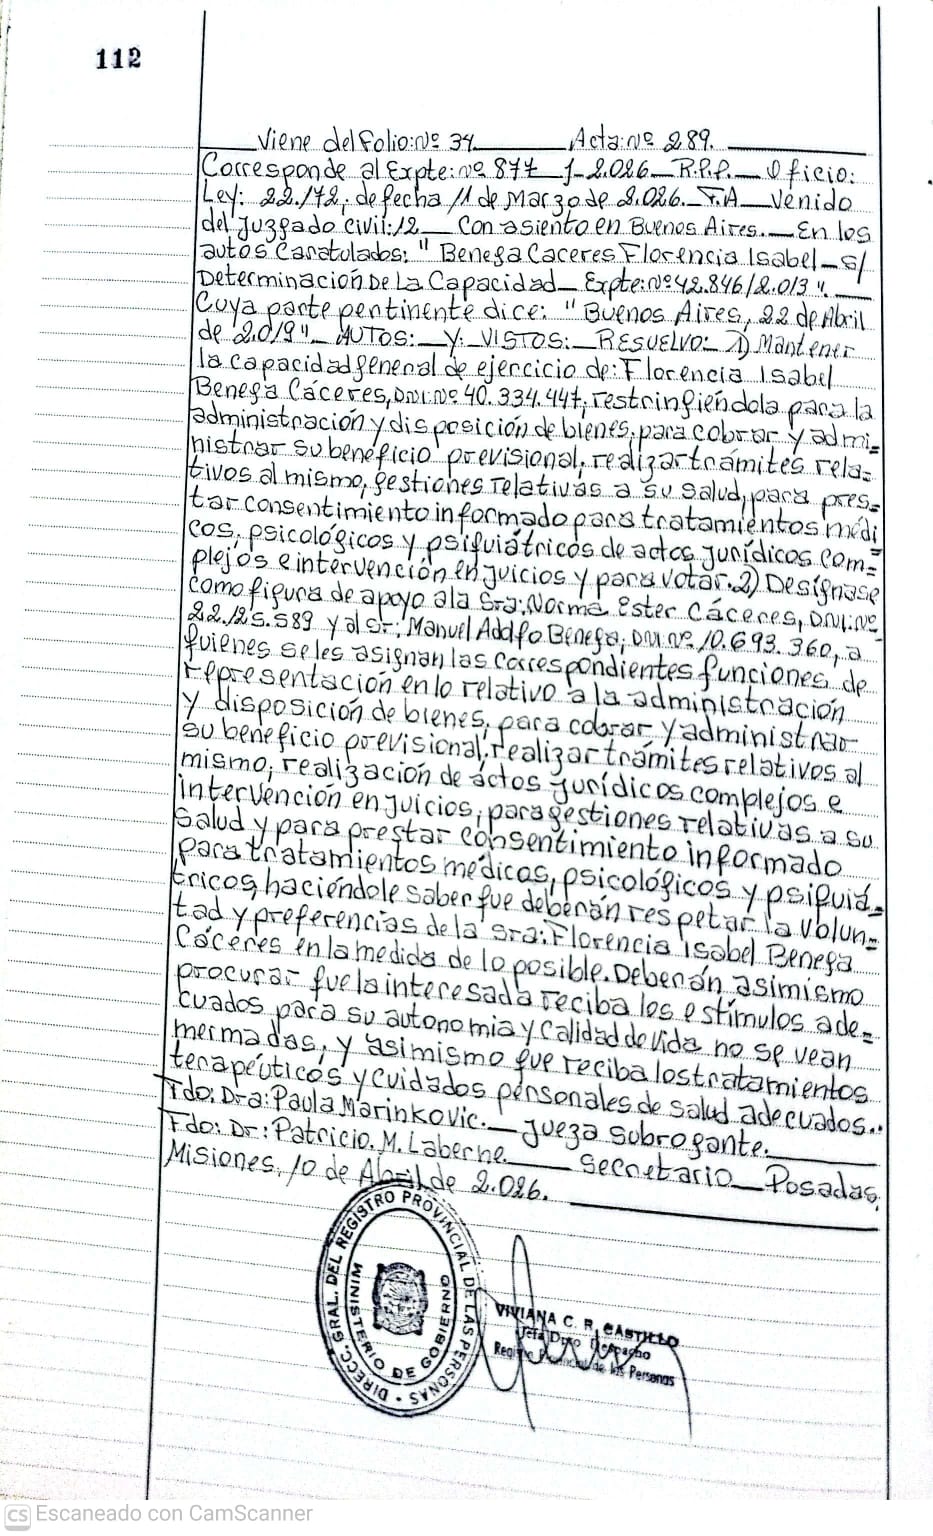 112
Viene del Folio: Nº 34. Acta: Nº 289.
Corresponde al Expte: nº 877 J-2.026_ R.P.P._ Oficio:
Ley: 22.172; de fecha 11 de Marzo de 2.026._ F.A_ Venido
del Juzgado Civil: 12_ Con asiento en Buenos Aires._ En los
autos Caratulados: "Benega Caceres Florencia Isabel_ s/
Determinación De La Capacidad_ Expte: Nº 42.846/2.013".
Cuya parte pentinente dice: "Buenos Aires, 22 de Abril
de 2.019"_ AUTOS:_ Y:_ VISTOS:_ RESUELVO:_ 1) Mantener
la capacidad general de ejercicio de: Florencia Isabel
Benega Cáceres, DNI: Nº 40.334.447, restringiéndola para la
administración y disposición de bienes, para cobrar y admi=
nistrar su beneficio previsional, realizar trámites rela=
tivos al mismo, gestiones relativas a su salud, para pres=
tar consentimiento informado para tratamientos médi
cos, psicológicos y psiquiátricos de actos jurídicos com=
plejos e intervención en juicios y para votar. 2) Desígnase
como figura de apoyo a la Sra: Norma Ester Cáceres, DNI: Nº
22.125.589 y al Sr: Manuel Adolfo Benega; DNI Nº. 10.693.360, a
quienes se les asignan las correspondientes funciones de
representación en lo relativo a la administración
y disposición de bienes, para cobrar y administrar
su beneficio previsional, realizar trámites relativos al
mismo, realización de actos jurídicos complejos e
intervención en juicios, para gestiones relativas a su
salud y para prestar consentimiento informado
para tratamientos médicos, psicológicos y psiquiá=
tricos, haciéndole saber que deberán respetar la volun=
tad y preferencias de la Sra: Florencia Isabel Benega
Cáceres en la medida de lo posible. Deberán asimismo
procurar que la interesada reciba los estímulos ade=
cuados para su autonomía y calidad de vida no se vean
mermadas, y asimismo que reciba los tratamientos
terapéuticos y cuidados personales de salud adecuados..
Fdo: Dra: Paula Marinkovic._ Jueza Subrogante.
Fdo: Dr: Patricio. M. Laberne. Secretario_ Posadas,
Misiones, 10 de Abril de 2.026.
DIRECC. GRAL. DEL REGISTRO PROVINCIAL DE LAS PERSONAS
MINISTERIO DE GOBIERNO
VIVIANA C. R. CASTILLO
Jefa Dpto Despacho
Registro Provincial de las Personas
CS Escaneado con CamScanner